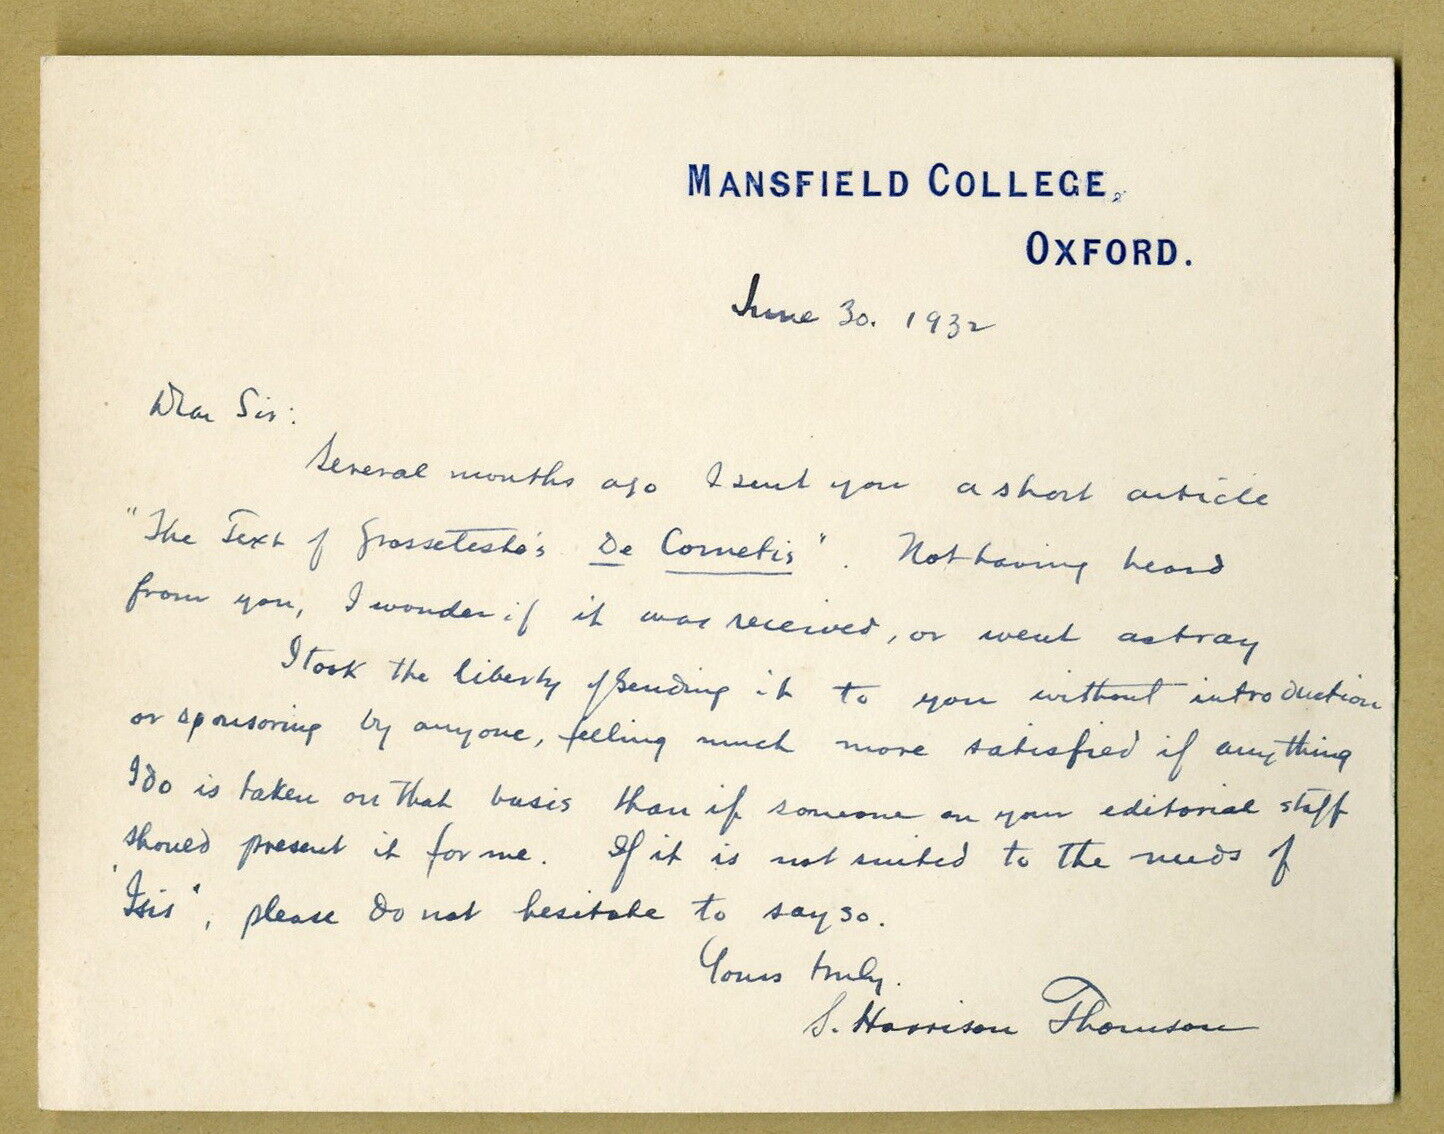 MANSFIELD COLLEGE,
OXFORD.
June 30. 1932
Dear Sir:
Several months ago I sent you a short article
"The Text of Grosseteste's De Cometis". Not having heard
from you, I wonder if it was received, or went astray
I took the liberty of sending it to you without introduction
or sponsoring by anyone, feeling much more satisfied if anything
I do is taken on that basis than if someone on your editorial staff
should present it for me. If it is not suited to the needs of
"Isis", please do not hesitate to say so.
Yours truly.
S. Harrison Thomson